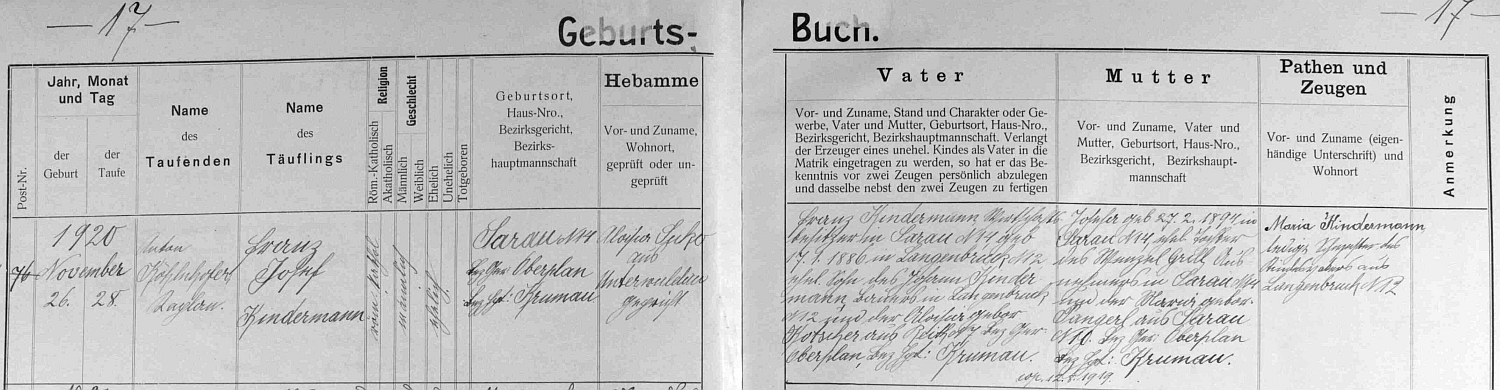 — 17 —
Geburts-
Buch.
— 17 —
Post-Nr.
Jahr, Monat
und Tag
der
Geburt
der
Taufe
Name
des
Taufenden
Name
des
Täuflings
Religion
Röm.-Katholisch
Akatholisch
Geschlecht
Männlich
Weiblich
Ehelich
Unehelich
Totgeboren
Geburtsort,
Haus-Nro.,
Bezirksgericht,
Bezirks-
hauptmannschaft
Hebamme
Vor- und Zuname,
Wohnort,
geprüft oder un-
geprüft
Vater
Vor- und Zuname, Stand und Charakter oder Ge-
werbe, Vater und Mutter, Geburtsort, Haus-Nro.,
Bezirksgericht, Bezirkshauptmannschaft. Verlangt
der Erzeuger eines unehel. Kindes als Vater in die
Matrik eingetragen zu werden, so hat er das Be-
kenntnis vor zwei Zeugen persönlich abzulegen
und dasselbe nebst den zwei Zeugen zu fertigen
Mutter
Vor- und Zuname, Vater und
Mutter, Geburtsort, Haus-Nro.,
Bezirksgericht, Bezirkshaupt-
mannschaft
Pathen und
Zeugen
Vor- und Zuname (eigen-
händige Unterschrift) und
Wohnort
Anmerkung
76
1920
November
26.
28.
Anton
Kaplan.
Franz
Josef
Kindermann
männlich
ehelich
Sarau N14
Bez Ger: Oberplan
Bez Hpt: Krumau
Aloisia
aus
Unterwuldau
geprüft
Franz Kindermann Wirtschafts
besitzer in Sarau N14 geb
17.1.1886 in Langenbruck N12
ehel. Sohn des Johann Kinder
mann Bauers in Langenbruck
N12 und der Aloisia gebor
aus Bez Ger:
Oberplan, Bez Hpt: Krumau.
cop. 12.8.1919.
Josefa geb 27.2.1894 in
Sarau N14 ehel Tochter
des Wenzel Grill Aus
nehmers in Sarau N14
und der Maria gebor.
Sangerl aus Sarau
Bez Ger: Oberplan
Bez Hpt: Krumau.
Maria Kindermann
ledige Schwester des
Kindesvaters aus
Langenbruck N12